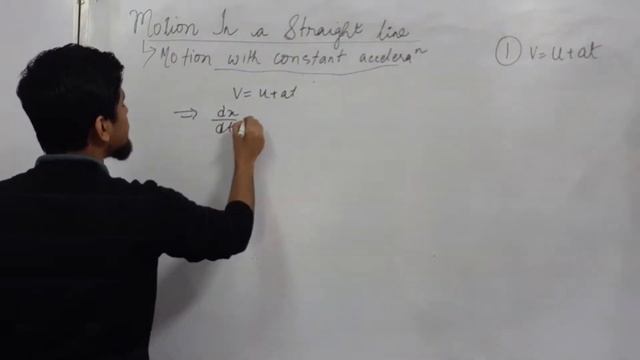 Motion In a Straight line
↳ Motion with constant acceleraⁿ
① V = u + at
V = u + at
⇒ dx/dt